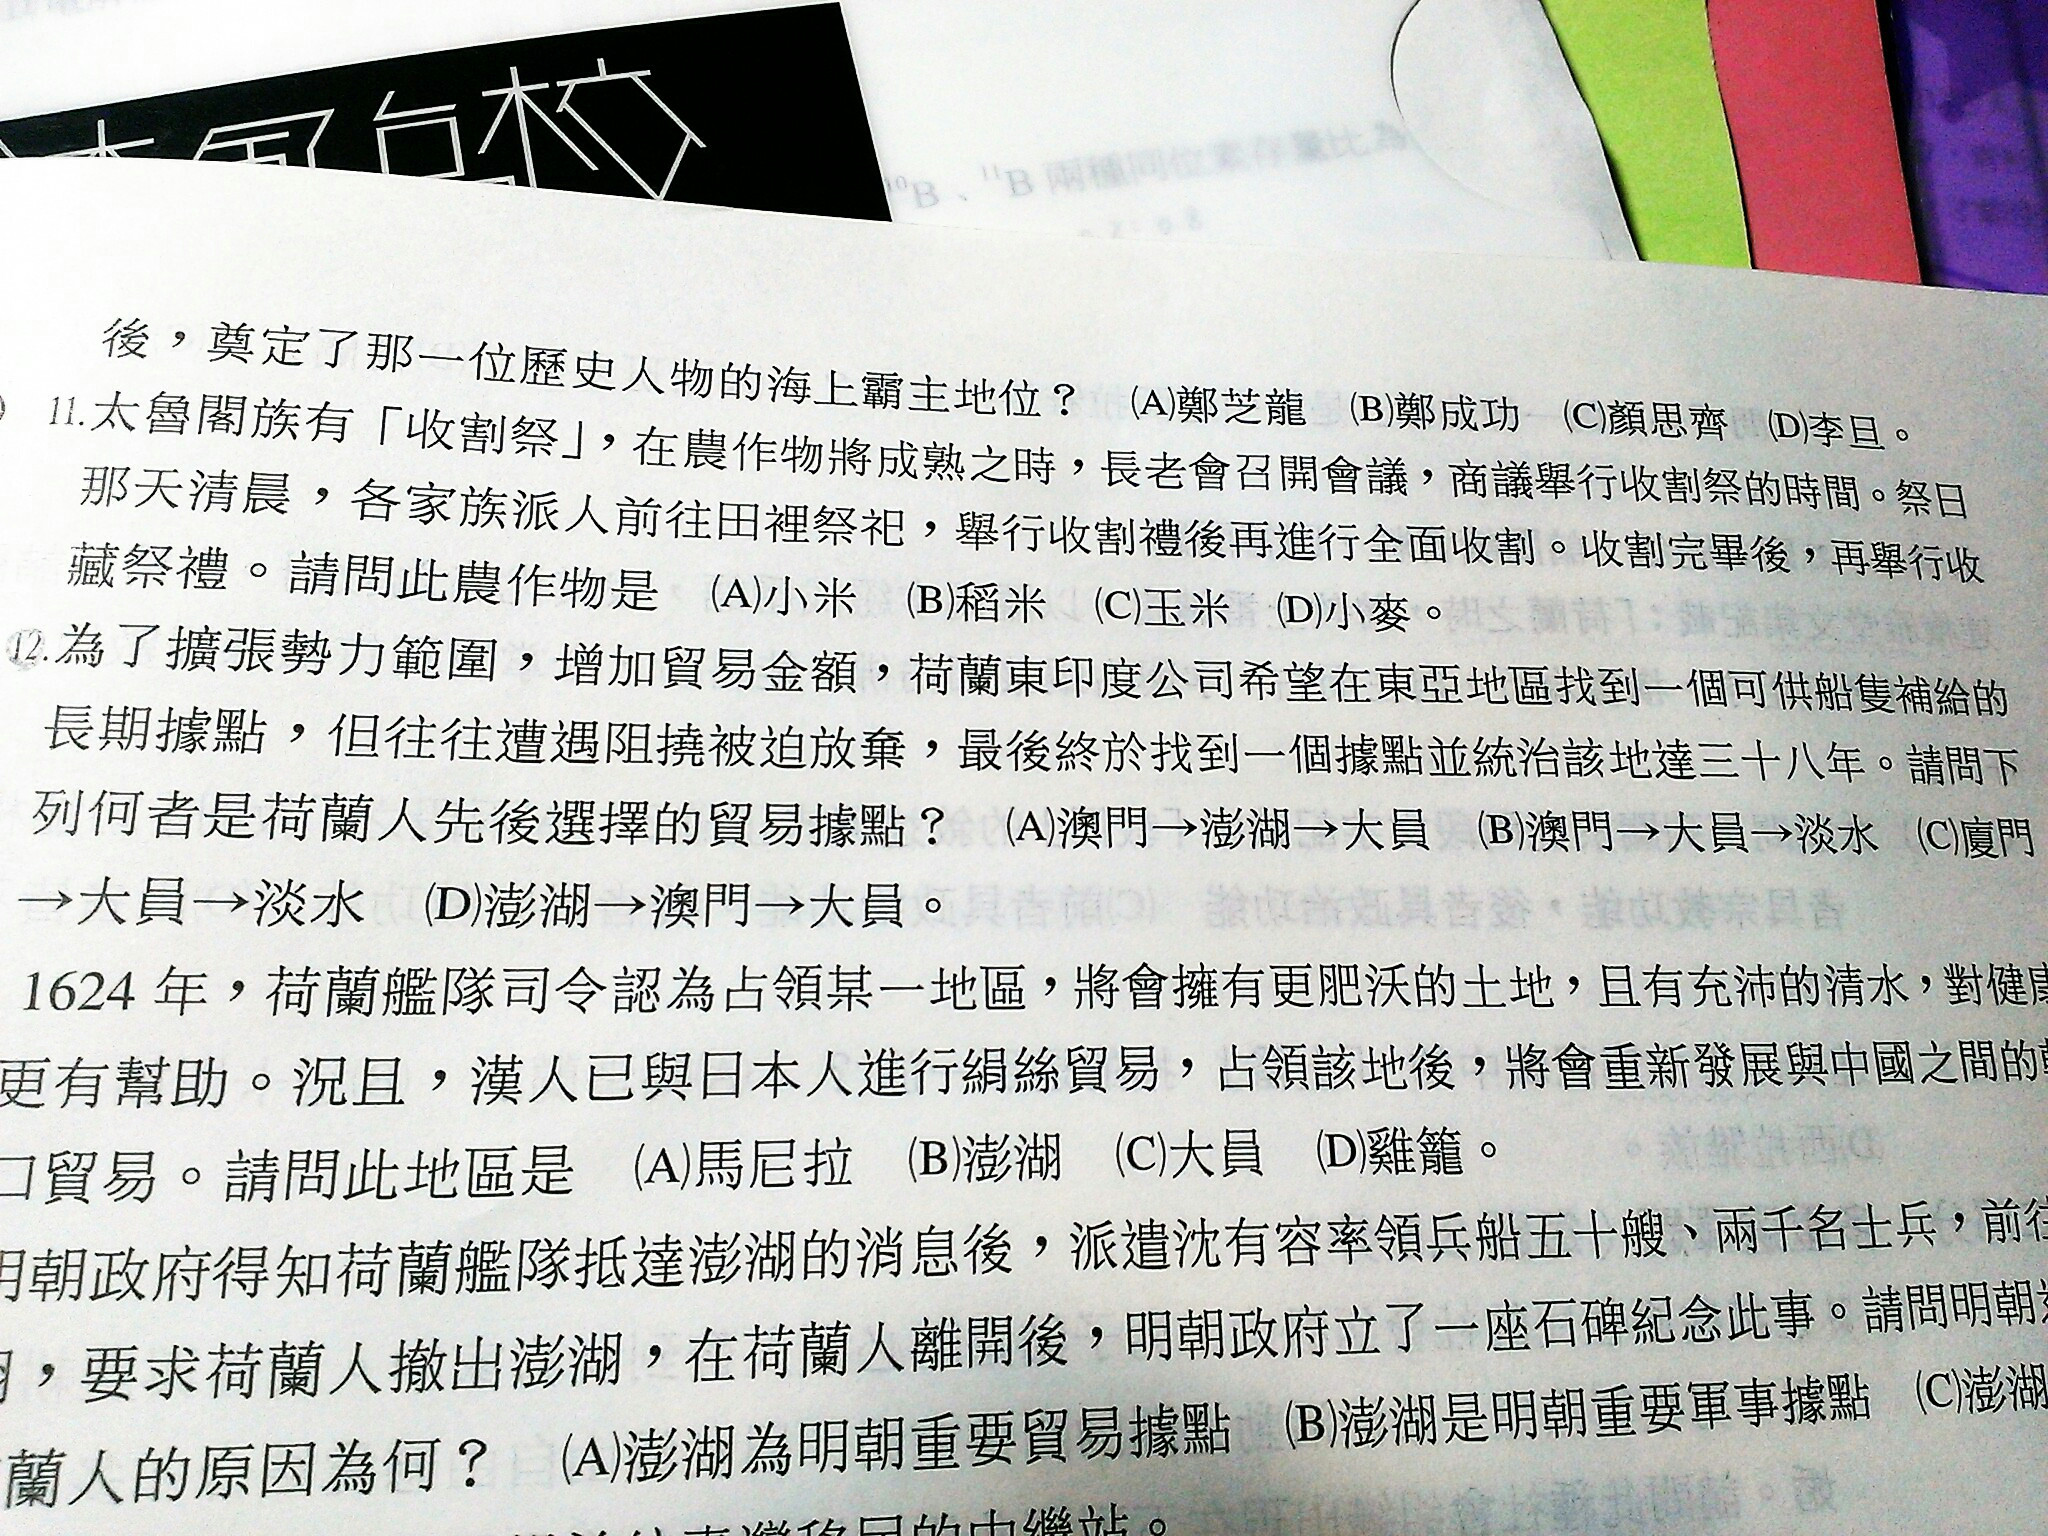 10B、11B 兩種同位素存量比為
後，奠定了那一位歷史人物的海上霸主地位？ (A)鄭芝龍 (B)鄭成功 (C)顏思齊 (D)李旦。
11.太魯閣族有「收割祭」，在農作物將成熟之時，長老會召開會議，商議舉行收割祭的時間。祭日
那天清晨，各家族派人前往田裡祭祀，舉行收割禮後再進行全面收割。收割完畢後，再舉行收
藏祭禮。請問此農作物是 (A)小米 (B)稻米 (C)玉米 (D)小麥。
12.為了擴張勢力範圍，增加貿易金額，荷蘭東印度公司希望在東亞地區找到一個可供船隻補給的
長期據點，但往往遭遇阻撓被迫放棄，最後終於找到一個據點並統治該地達三十八年。請問下
列何者是荷蘭人先後選擇的貿易據點？ (A)澳門→澎湖→大員 (B)澳門→大員→淡水 (C)廈門
→大員→淡水 (D)澎湖→澳門→大員。
1624 年，荷蘭艦隊司令認為占領某一地區，將會擁有更肥沃的土地，且有充沛的清水，對健康
更有幫助。況且，漢人已與日本人進行絹絲貿易，占領該地後，將會重新發展與中國之間的
口貿易。請問此地區是 (A)馬尼拉 (B)澎湖 (C)大員 (D)雞籠。
明朝政府得知荷蘭艦隊抵達澎湖的消息後，派遣沈有容率領兵船五十艘、兩千名士兵，前往
，要求荷蘭人撤出澎湖，在荷蘭人離開後，明朝政府立了一座石碑紀念此事。請問明朝
蘭人的原因為何？ (A)澎湖為明朝重要貿易據點 (B)澎湖是明朝重要軍事據點 (C)澎湖
的中繼站。